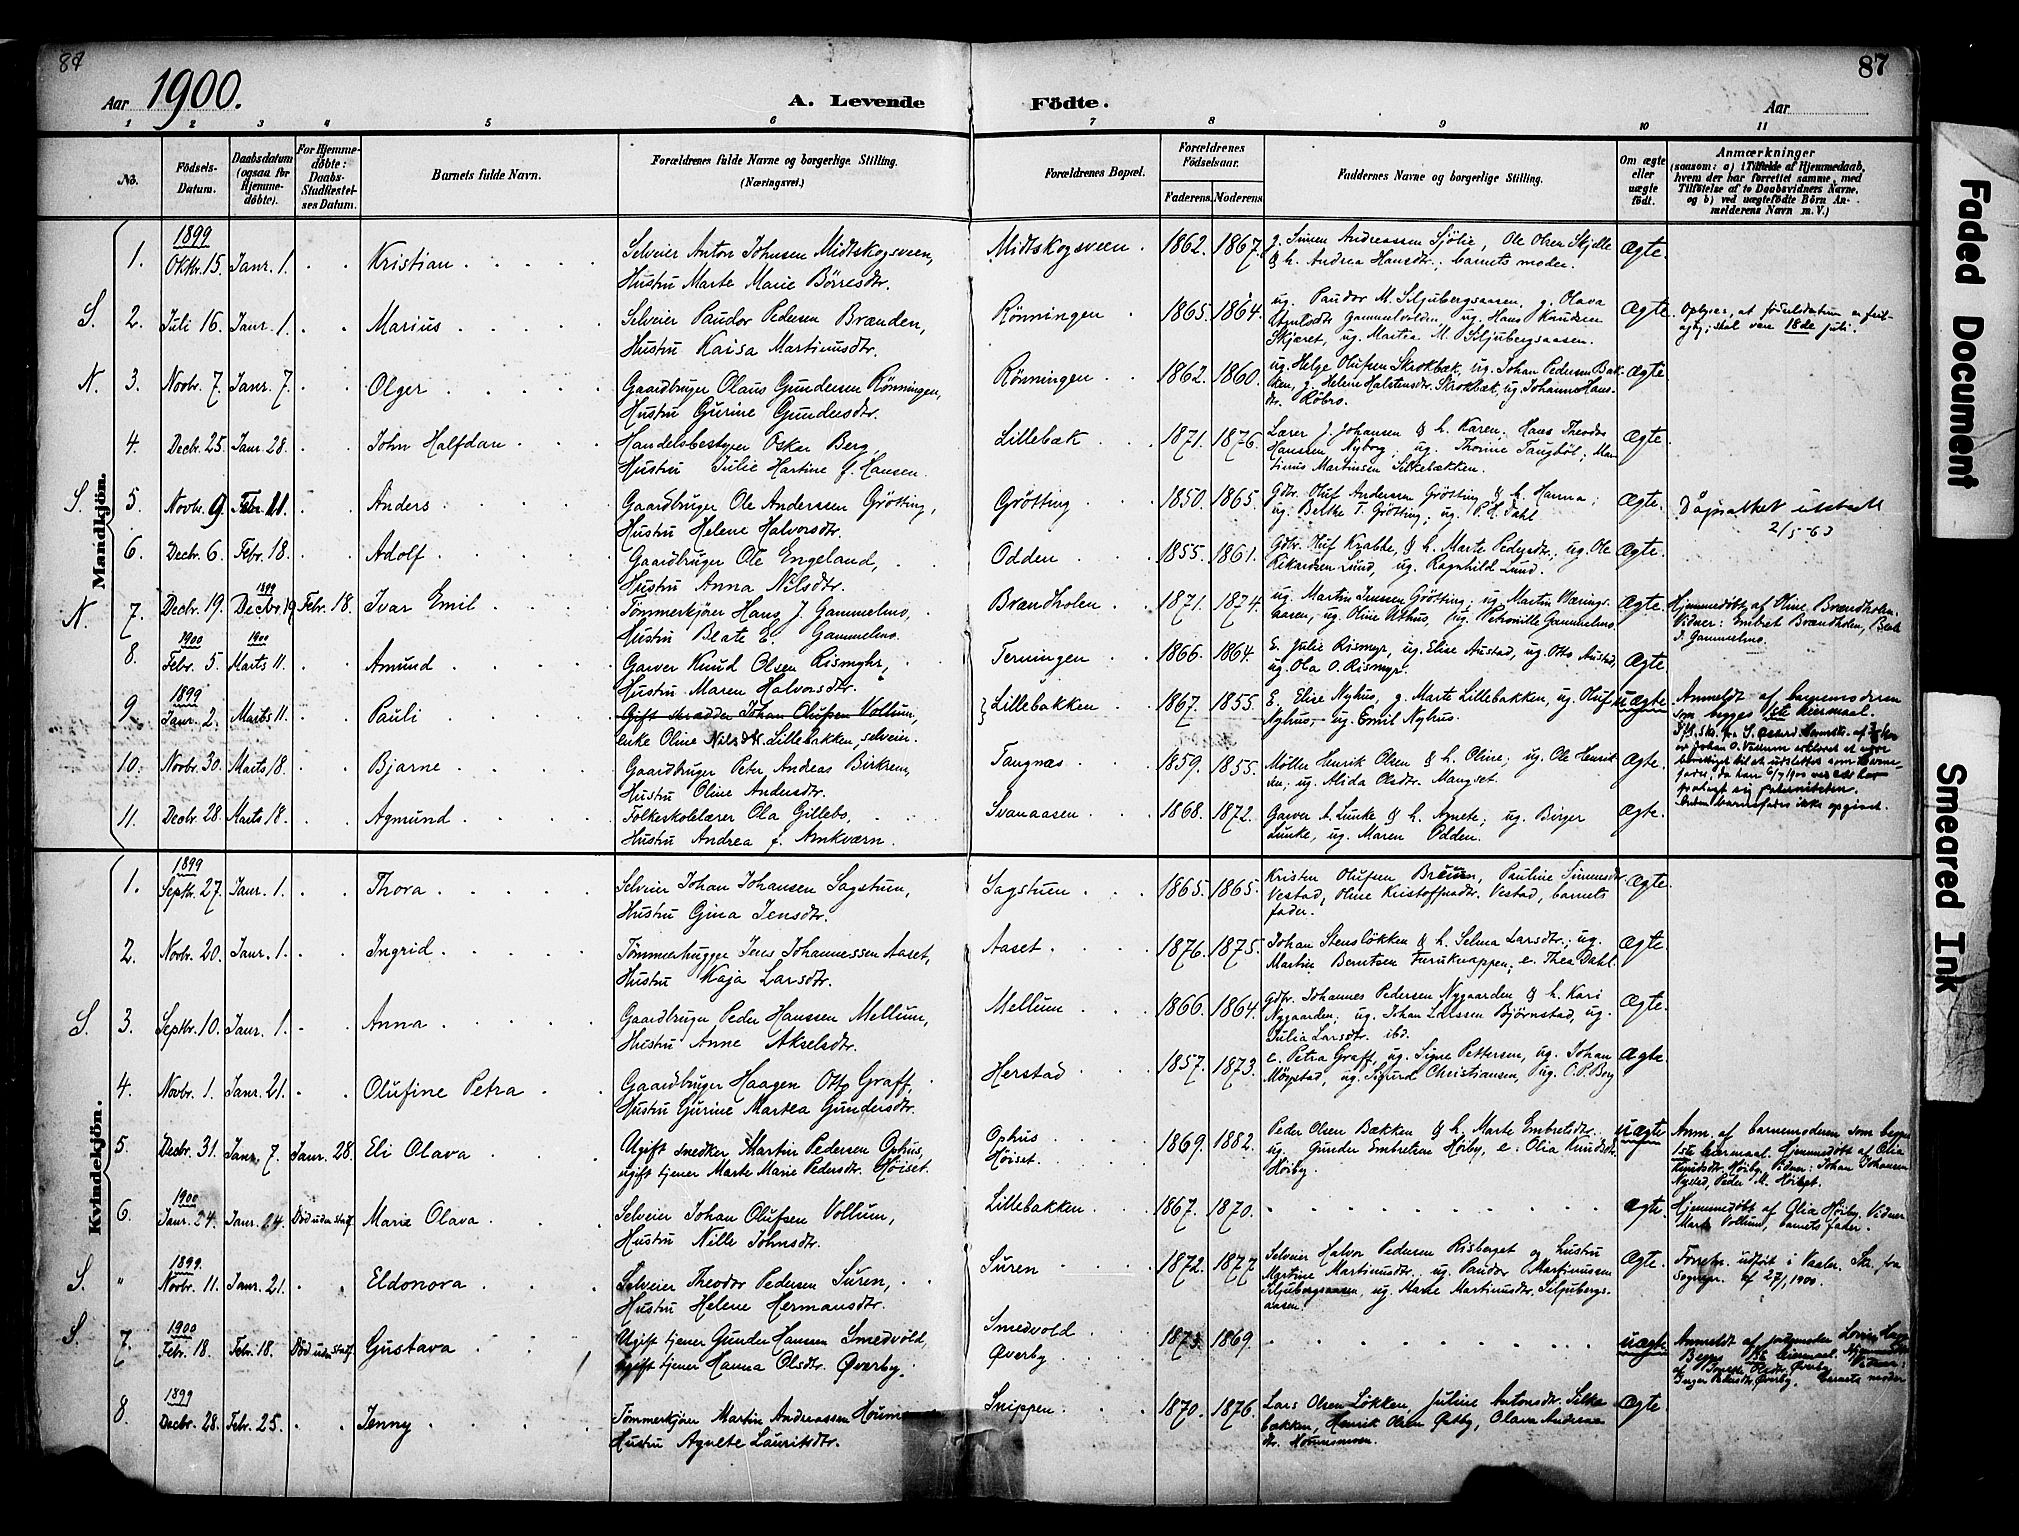 87
87
Aar 1900. A. Levende Födte. Aar
1 2 3 4 5 6 7 8 9 10 11
No.
Födsels-Datum.
Daabsdatum (ogsaa for Hjemme-döbte).
For Hjemme-döbte: Daabs-Stadfæstel-ses Datum.
Barnets fulde Navn.
Forældrenes fulde Navne og borgerlige Stilling. (Næringsvei.)
Forældrenes Bopæl.
Forældrenes Födselsaar.
Faderens. Moderens
Faddernes Navne og borgerlige Stilling.
Om ægte eller uægte födt.
Anmærkninger
(saasom: a) i Tilfælde af Hjemmedaab, hvem der har forrettet samme, med Tilföielse af to Daabsvidners Navne, og b) ved uægtefödte Börn An-melderens Navn m. V.)
Mandkjön.
1. 1899 Oktbr. 15. Janr. 1. Kristian
Selveier Anton Johnsen Midtskogsveen,
Hustru Marte Marie Börresdtr.
Midtskogsveen. 1862. 1867.
g. Simen Andreassen Sjölie, Ole Olsen Skjelle
& h. Andrea Hansdtr.; barnets moder.
Ægte.
S. 2. Juli 16. Janr. 1. Marius
Selveier Paudor Pedersen Brænden,
Hustru Kaisa Martinusdtr.
Rönningen 1865. 1864.
ug. Paudor M. Siljubergsaasen, g. Olava
Gammelvolden, ug. Hans Knudsen
Skjæret, ug. Martea M. Siljubergsaasen.
Ægte.
Oplyses, at födselsdatum er feil-
agtig; skal være 18de juli.
N. 3. Novbr. 7. Janr. 7. Olger
Gaardbruger Olaus Gundersen Rönningen,
Hustru Gurine Gundersdtr.
Rönningen 1862. 1860.
ug. Helge Olufsen Skrokbæk, ug. Johan Pedersen Bak-
ken, g. Helene Halstensdtr. Skrokbæk, ug. Johanne Hans-
dtr. Röbro.
Ægte
4. Decbr. 25. Janr. 28. John Halfdan
Handelsbestyrer Oskar Berg,
Hustru Julie Hartine f. Hansen.
Lillebæk 1871. 1876.
Lærer J. Johansen & h. Karen, Hans Theodor
Hanssen, Nyborg, ug. Thonine Taugböl; Mar-
tinus Martinssen Silkebækken.
Ægte.
S. 5. Novbr. 9. Febr. 11. Anders
Gaardbruger Ole Anderssen Grötting,
Hustru Helene Halvorsdtr.
Grötting 1850. 1865.
Gdbr. Oluf Anderssen Grötting & h. Hanna;
ug. Berthe T. Grötting; ug. P. H. Dahl
Ægte.
Dåpsattest utstedt
2/5-63
6. Decbr. 6. Febr. 18. Adolf
Gaardbruger Ole Engeland,
Hustru Anna Nilsdtr.
Odden 1855. 1861.
Gdbr. Oluf Krabbe, & h. Marte Pedersdtr., ug. Ole
Rikardsen Lund, ug. Ragnhild Lund.
Ægte.
N. 7. Decbr. 19. 1899 Decbr. 19 Febr. 18. Ivar Emil
Tömmerkjörer Hans J. Gammelmo,
Hustru Beate E. Gammelmo.
Brændholen 1871. 1874.
ug. Martin Jenssen Grötting; ug. Martin Værings-
aasen, ug. Oline Uthus, ug. Petronille Gammelmo.
Ægte.
Hjemmedöbt af Oline Brændholen.
Vidner: Embret Brændholen, Beate
Gammelmo.
8. 1900 Febr. 5. 1900 Marts 11. Amund
Garver Knud Olsen Rismyhr,
Hustru Maren Halvorsdtr.
Terningen 1866. 1864.
E. Julie Rismyr, ug. Elise Austad, ug. Otto Austad,
ug. Ola O. Rismyr.
Ægte
9. 1899 Janr. 2. Marts 11. Pauli
Gift skrædder Johan Olufsen Vollum,
enke Oline Nilsdtr. Lillebakken, selveier.
Lillebakken 1867. 1855.
E. Elise Nyhus, g. Marte Lillebakken, ug. Oluf
Nyhus, ug. Emil Nyhus.
uægte.
Anmeldt af barnemoderen
som begges 1ste leiermaal.
10. Novbr. 30. Marts 18. Bjarne
Gaardbruger Peter Andreas Birkrem,
Hustru Oline Andersdtr.
Tangnæs 1859. 1855.
Möller Henrik Olsen & h. Oline; ug. Ole Henrik-
sen, ug. Alida Olsdtr. Mangset.
Ægte.
11. Decbr. 28. Marts 18. Agmund
Folkeskolelærer Ola Gillebo,
Hustru Andrea f. Amkværn.
Svanaasen 1868. 1872.
Garver A. Lunke & h. Agnete; ug. Birger
Lunke, ug. Maren Odden.
Ægte.
Kvindekjön.
1. 1899 Septbr. 27. Janr. 1. Thora
Selveier Johan Johansen Sagstuen,
Hustru Gina Jensdtr.
Sagstuen 1865. 1865.
Krister Olufsen Breuen, Pauline Simensdtr.
Vestad, Oline Kristoffersdtr. Vestad, barnets
fader.
Ægte.
2. Novbr. 20. Janr. 1. Ingrid
Tömmerhugger Jens Johannessen Aaset,
Hustru Kaja Larsdtr.
Aaset 1876. 1875.
Johan Stenslökken & h. Selma Larsdtr.; ug.
Martin Berntsen Furuknappen; e. Thea Dahl.
Ægte.
S. 3. Septbr. 10. Janr. 1. Anna
Gaardbruger Peder Hanssen Mellum,
Hustru Anne Akselsdtr.
Mellum 1866. 1864.
Gdbr. Johannes Pedersen Nygaarden & h. Kari
Nygaarden; ug. Johan Larssen Björnstad, ug.
Julia Larsdtr. ibd.
Ægte.
4. Novbr. 1. Janr. 21. Olufine Petra
Gaardbruger Haagen Otto Graff,
Hustru Gurine Martea Gundersdtr.
Herstad 1857. 1873.
e. Petra Graff, ug. Signe Pettersen, ug. Johan
Mörstad, ug. Sigurd Christiansen, ug. O. P. Berg
Ægte.
5. Decbr. 31. Janr. 7. Janr. 28. Eli Olava
Ugift snedker Martin Pedersen Ophus,
ugift tjener Marte Marie Pedersdtr. Höiset.
Ophus
Höiset. 1869. 1882.
Peder Olsen Bækken & h. Marte Embretsdtr.
ug. Gunder Embretsen Höiby, e. Olia Knudsdtr.
Höiby.
uægte
Anm. af barnemoderen som begges
1ste leiermaal. Hjemmedöbt af Olia
Knutsdtr. Höiby. Vidner: Johan Johansen
Nysted, Peder M. Höiset.
6. 1900 Janr. 24. Janr. 24. Död uden stadf. Marie Olava
Selveier Johan Olufsen Vollum,
Hustru Nille Johnsdtr.
Lillebakken 1867. 1870.
Ægte.
Hjemmedöbt af Olia Höiby. Vidner
Marte Vollum, barnets fader.
S. " 1899. Novbr. 11. Janr. 21. Eldonora
Selveier Theodor Pedersen Suren,
Hustru Helene Hermansdtr.
Suren 1872. 1877.
Selveier Halvor Pedersen Risberget og hustru
Martine Martinusdtr. ug. Paudor Martinussen
Siljubergsaasen, ug. Marte Martinusdtr. Siljubergs-
aasen.
Ægte.
Forretn. udfört i Vaaler. Skr. fra
Sognepr. af 27/1 1900.
S. 7. 1900 Febr. 18. Febr. 18. Död uden stadf. Gustava
Ugift tjener Gunder Hansen Smedvold,
ugift tjener Hanna Olsdtr. Överby.
Smedvold
Överby. 1873. 1869.
uægte
8. 1899 Decbr. 28. Febr. 25. Jenny
Tömmerkjörer Martin Andreassen
Hustru Agnete Lauritsdtr.
Snippen 1870. 1876.
Lars Olsen Lökken, Juline Antonsdtr. Silke-
bækken, Henrik Olsen Östby, Olava Andreas-
dtr.
Ægte.
Faded Document
Smeared Ink